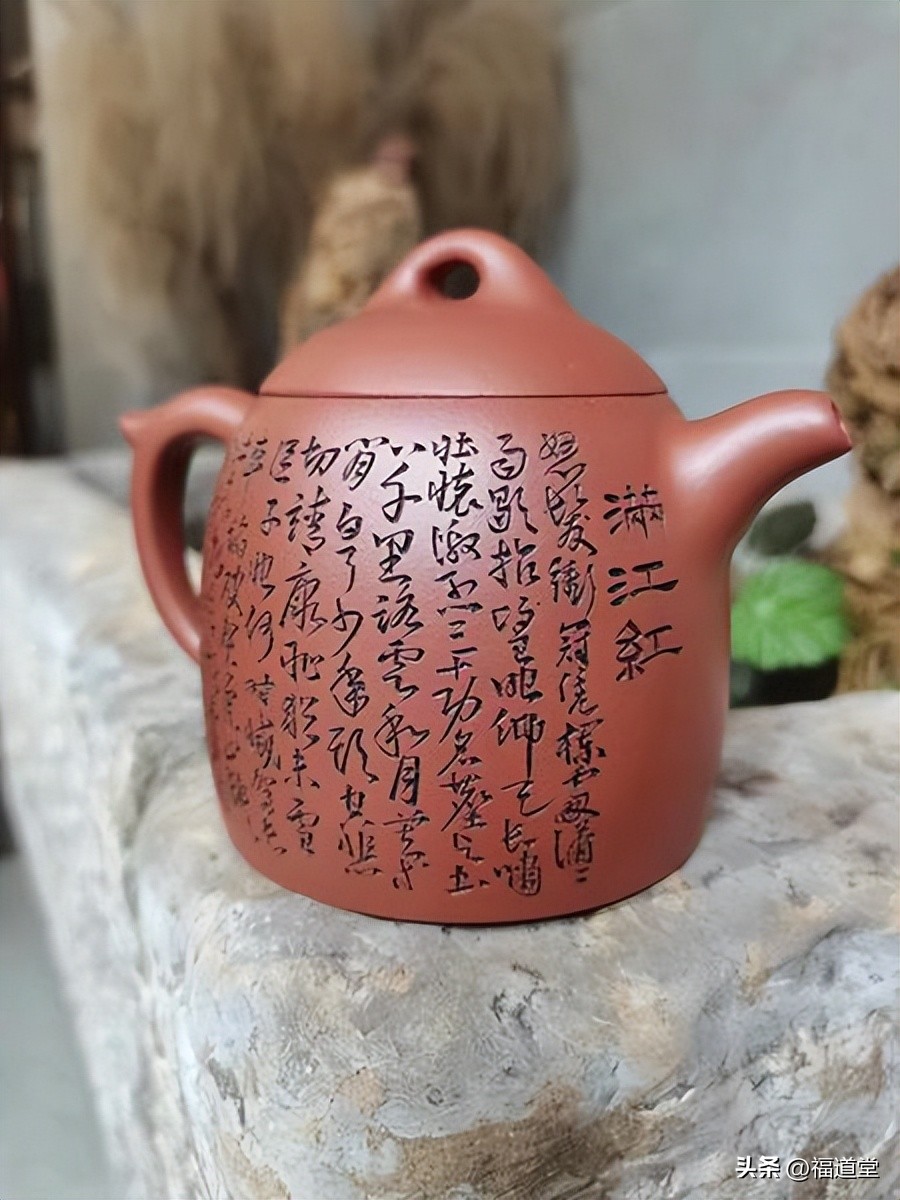 滿江紅
怒髮衝冠凭欄處瀟〻
雨歇抬望眼仰天长嘯
壯懷激烈三十功名塵与土
八千里路雲和月莫等
閒白了少年頭空悲
切靖康恥猶未雪
臣子恨何時滅駕長
車踏破賀蘭山缺
头条 @福道堂